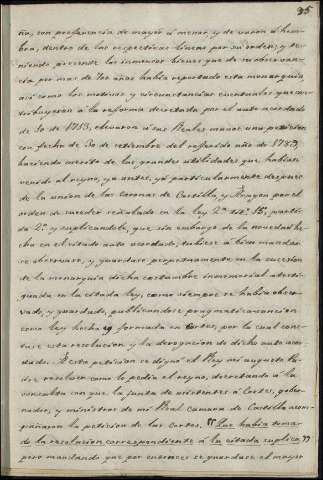 35
ña, con preferencia de mayor á menor y de varon á hem-
bra, dentro de las respectivas lineas por su orden; y te-
niendo presente los inmensos bienes que de su observan-
cia por mas de 700 años habia reportado esta monarquia
asi como los motivos y circunstancias eventuales que con-
tribuyeron á la reforma decretada por el auto acordado
de 10 de 1713, elevaron á sus Reales manos una peticion
con fecha de 30 de setiembre del referido año de 1789,
haciendo merito de las grandes utilidades que habian
venido al reyno, ya antes, ya particularmente despues
de la union de las coronas de Castilla, y Aragon por el
orden de suceder señalado en la ley 2ª titº 15, parti-
da 2ª y suplicandole, que sin embargo de la novedad he-
cha en el citado auto acordado, tubiese á bien mandar
se observase, y guardase perpetuamente en la sucesion
de la monarquia dicha costumbre inmemorial atesti-
guada en la citada ley, como siempre se habia obser-
vado, y guardado, publicandose pragmatica sancion
como ley hecha y formada en Cortes, por la cual cons-
tase esta resolucion y la derogacion de dicho auto acor-
dado. A esta peticion se dignó el Rey mi augusto Pa-
dre resolver como lo pedia el reyno, decretando á la
consulta con que la junta de asistentes á Cortes, gober-
nador, y ministros de mi Real Camara de Castilla acom-
pañaron la peticion de las Cortes. "Que habia toma-
do la resolucion correspondiente á la citada suplica"
pero mandando que por entonces se guardase el mayor